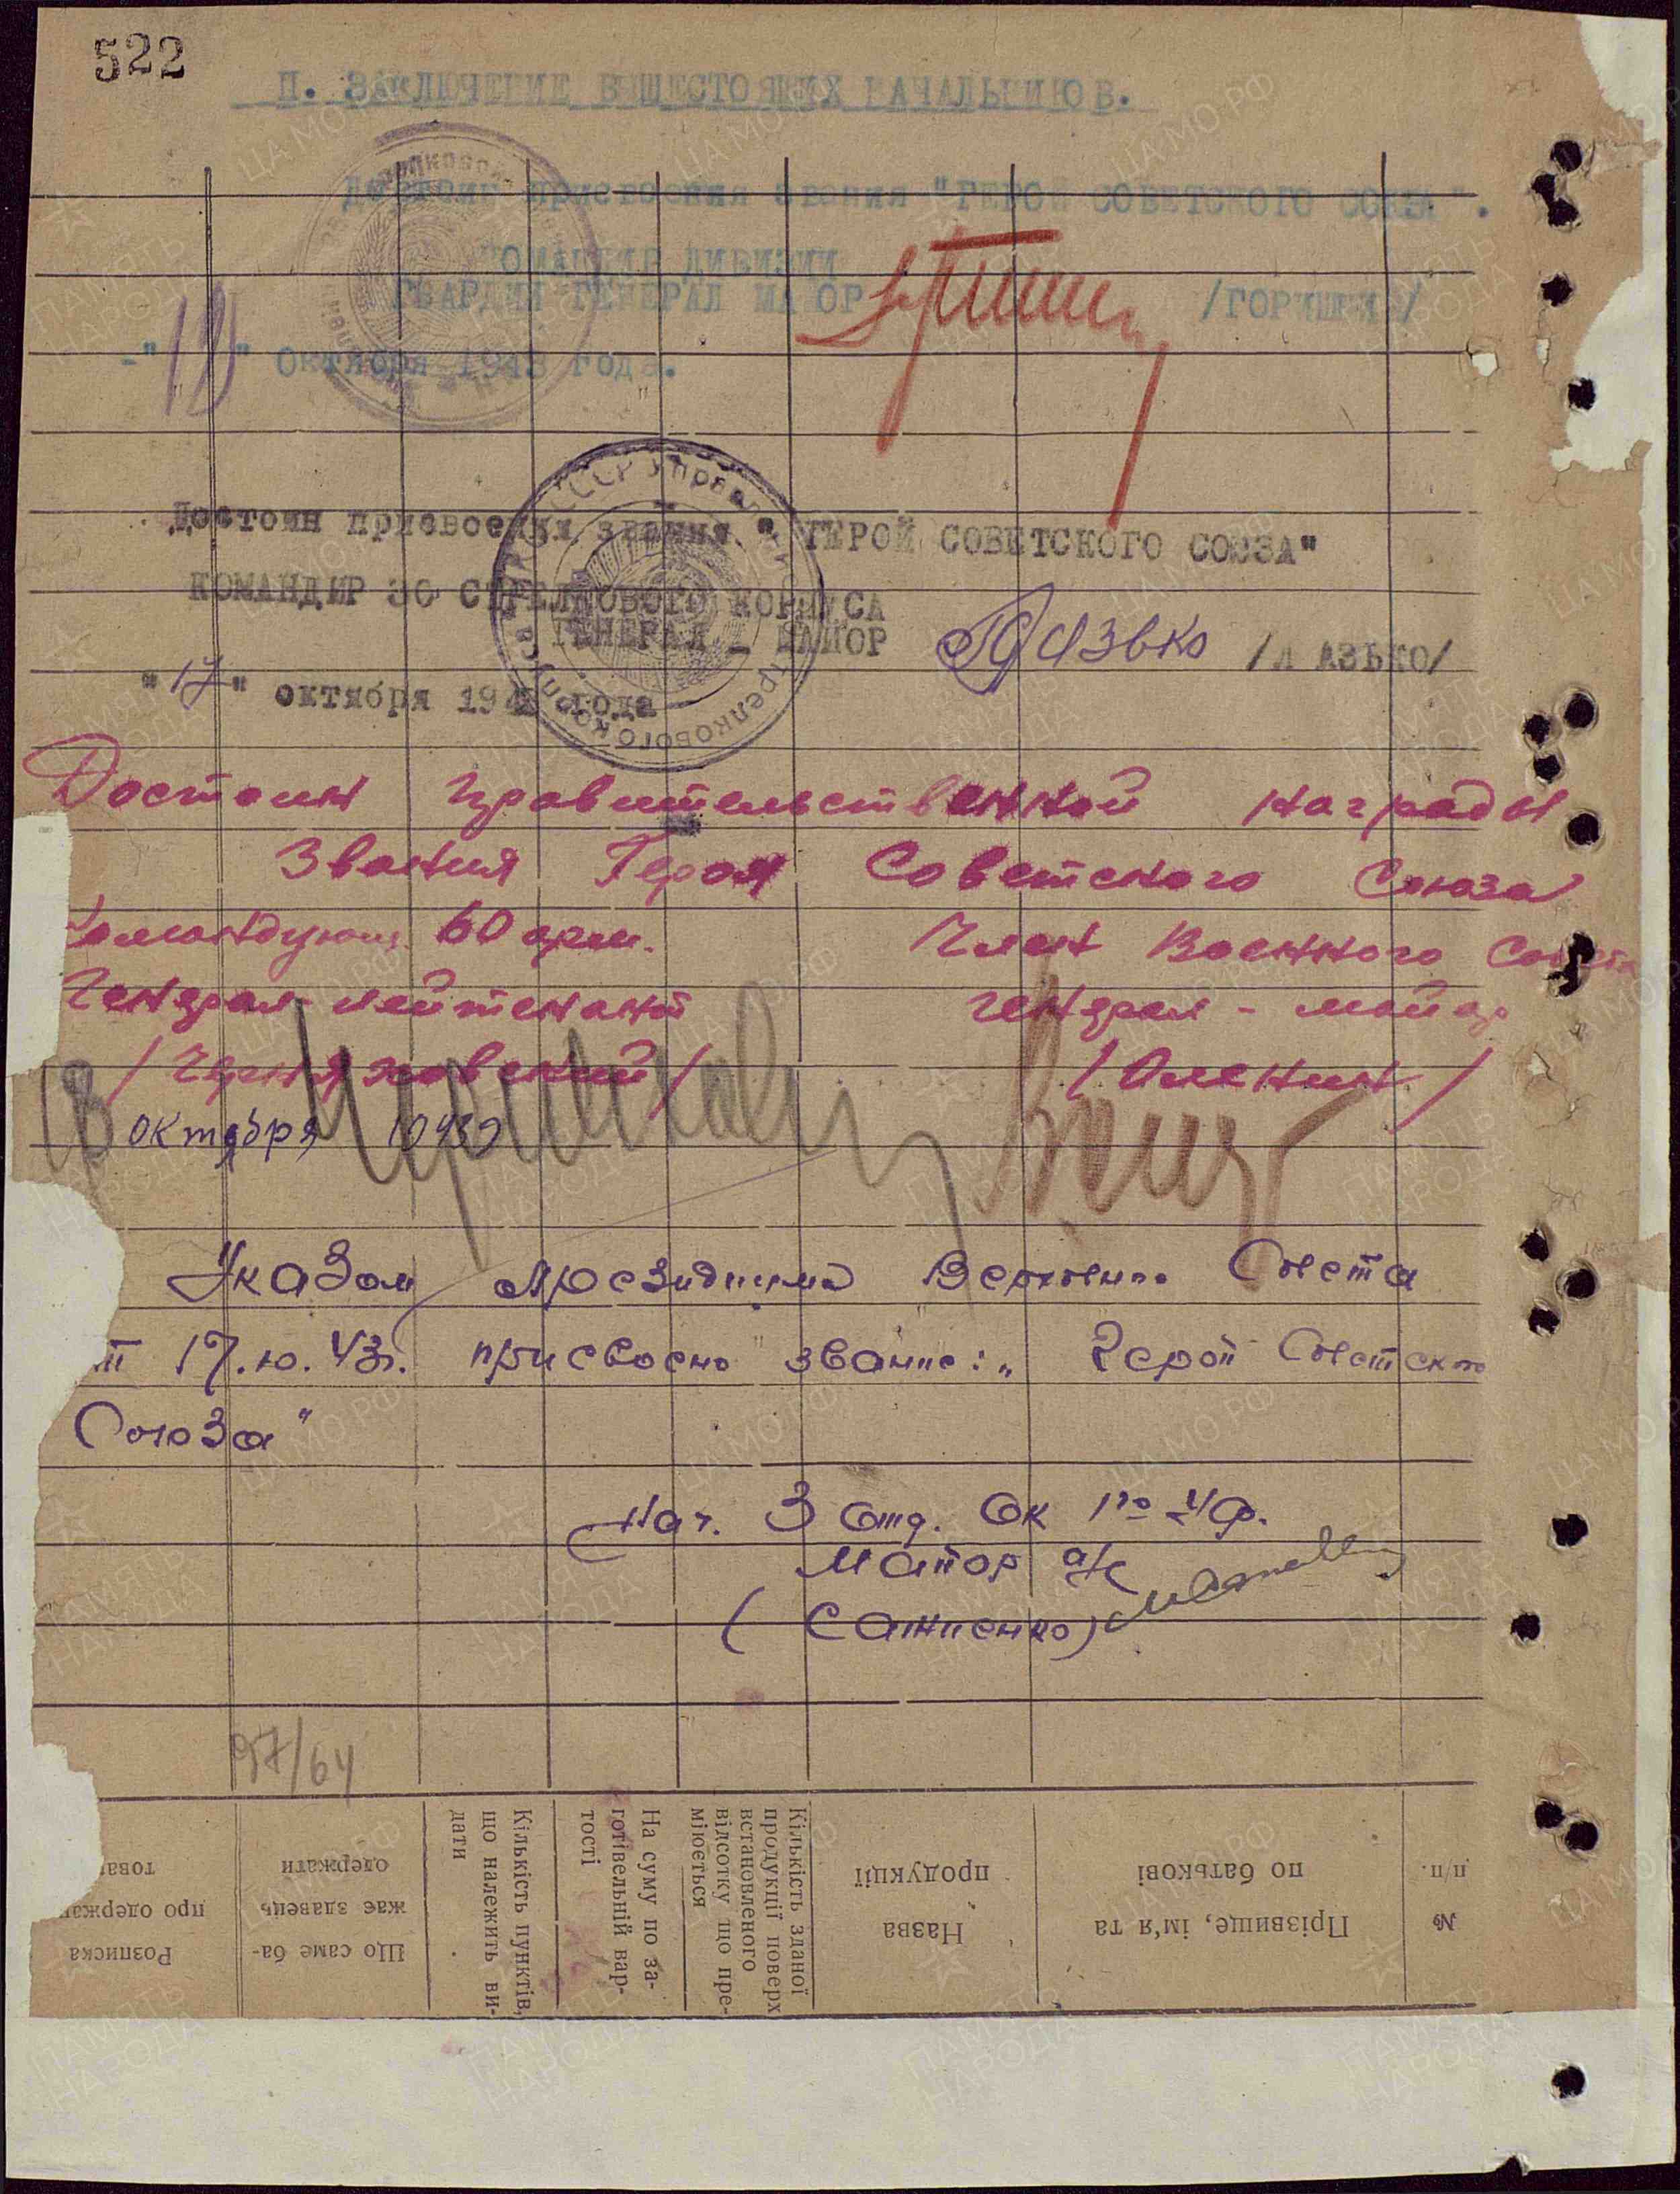 522
П. ЗАКЛЮЧЕНИЕ ВЫШЕСТОЯЩИХ НАЧАЛЬНИКОВ.
Достоин присвоения звания "ГЕРОЙ СОВЕТСКОГО СОЮЗА".
КОМАНДИР ДИВИЗИИ
ГВАРДИИ ГЕНЕРАЛ МАЙОР /ГОРИШНИЙ/
-" " Октября 1943 года.
Достоин присвоения звания " ГЕРОЙ СОВЕТСКОГО СОЮЗА"
КОМАНДИР 30 СТРЕЛКОВОГО КОРПУСА
ГЕНЕРАЛ - МАЙОР Лазько /Л АЗЬКО/
"17" октября 194 года
Достоин правительственной награды
Звания Героя Советского Союза
Командующ. 60 арм. Член Военного Совета
Генерал-лейтенант генерал-майор
/Черняховский/ /Оленин/
октября 1943
Указом Президиума Верховно.. Совета
от 17.10.43г. присвоено звание: „Герой Советского
Союза"
Нач. 3 отд. ОК 1го Уф.
Майор а/с
(Саниенко)
97/64
№ п/п.
Прізвище, ім'я та по батькові
Назва продукції
Кількість зданої продукції поверх встановленого відсотку що преміюється
На суму по заготівельній вартості
Кількість пунктів, що належить видати
Що саме бажає здавець одержати
Розписка про одержан това